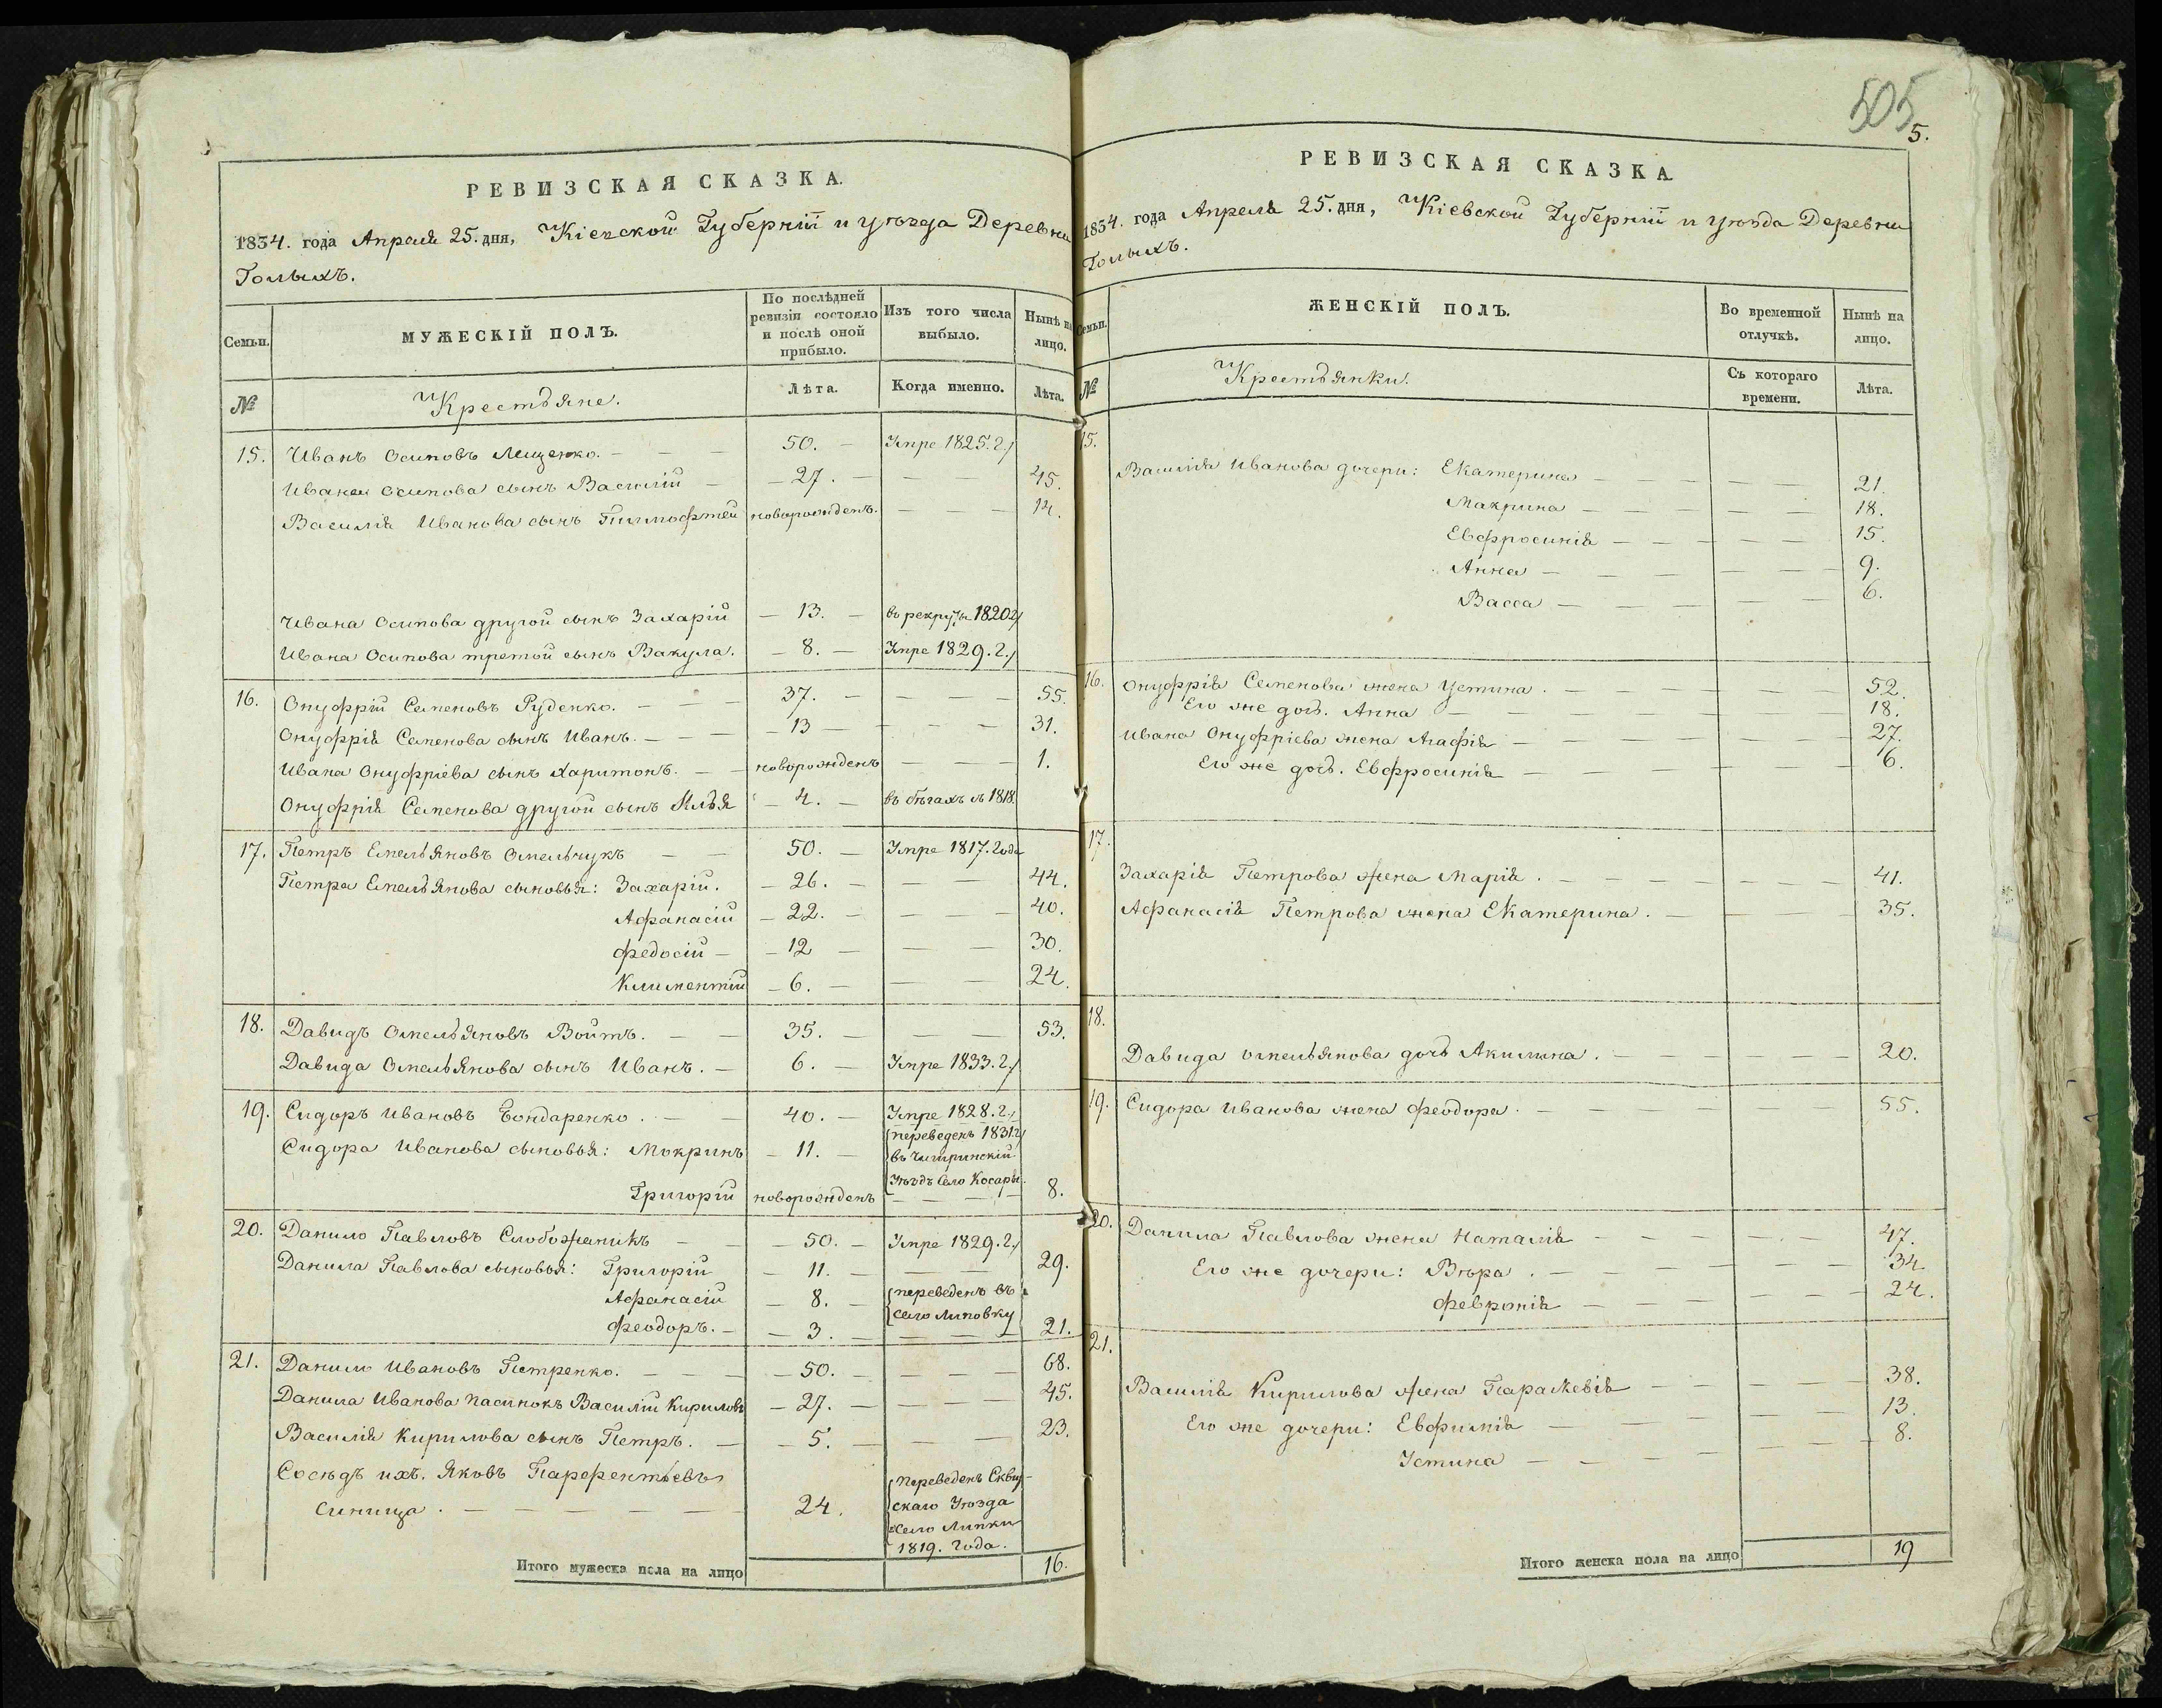 505
5.
РЕВИЗСКАЯ СКАЗКА.
1834. года Апреля 25. дня, Кіевской Губерніи и уѣзда Деревни
Голыхъ.
Семьи. МУЖЕСКІЙ ПОЛЪ. По послѣдней ревизіи состояло и послѣ оной прибыло. Изъ того числа выбыло. Нынѣ на лицо.
№ Крестьяне. Лѣта. Когда именно. Лѣта.
15. Иванъ Осиповъ Мищенко. — 50. — Умре 1825. г.
Ивана Осипова сынъ Василій — 27. — 45.
Василія Иванова сынъ Тимофтей новорожденъ. — 14.
Ивана Осипова другой сынъ Захарій — 13. — въ рекруты 1820 г
Ивана Осипова третой сынъ Вакула. — 8. — Умре 1829. г.
16. Онуфрій Семеновъ Руденко. — 37. — 55.
Онуфрія Семенова сынъ Иванъ. — 13 — 31.
Ивана Онуфріева сынъ Харитонъ. — новорожденъ — 1.
Онуфрія Семенова другой сынъ Илья — 4. — въ бѣгахъ съ 1818.
17. Петръ Емельяновъ Омельчукъ — 50. — Умре 1817. года
Петра Емельянова сыновья: Захарій. — 26. — 44.
Афанасій — 22. — 40.
Федосій — 12 — 30.
Климентій — 6. — 24.
18. Давидъ Омельяновъ Войтъ. — 35. — 53.
Давида Омельянова сынъ Иванъ. — 6. — Умре 1833. г.
19. Сидоръ Ивановъ Бондаренко. — 40. — Умре 1828. г.
Сидора Иванова сыновья: Мокринъ — 11. — переведенъ 1831 г
въ Чигиринскій
Уѣздъ Село Косары.
Григорій новорожденъ — 8.
20. Данило Павловъ Слобожаникъ — 50. — Умре 1829. г.
Данила Павлова сыновья: Григорій — 11. — 29.
Афанасій — 8. — переведенъ въ
село Липовку
Феодоръ. — 3. — 21.
21. Данило Ивановъ Петренко. — 50. — 68.
Данила Иванова пасинокъ Василій Кириловъ — 27. — 45.
Василія Кирилова сынъ Петръ. — 5. — 23.
Сосѣдъ ихъ. Яковъ Парфентьевъ
Синица. — 24. переведенъ Сквир-
скаго Уѣзда
село Липки
1819. года.
Итого мужеска пола на лицо 16.
РЕВИЗСКАЯ СКАЗКА
1834. года Апреля 25. дня, Кіевской Губерніи и уѣзда Деревни
Голыхъ.
Семьи. ЖЕНСКІЙ ПОЛЪ. Во временной отлучкѣ. Нынѣ на лицо.
№ Крестьянки. Съ котораго времени. Лѣта.
15.
Василія Иванова дочери: Екатерина — 21.
Макрина — 18.
Евфросинія — 15.
Анна — 9.
Васса — 6.
16. Онуфрія Семенова жена Устина. — 52.
Его же дочь. Анна — 18.
Ивана Онуфріева жена Агафія — 27.
Его же дочь. Евфросинія — 6.
17.
Захарія Петрова жена Марія. — 41.
Афанасія Петрова жена Екатерина. — 35.
18.
Давида Омельянова дочь Акилина. — 20.
19. Сидора Иванова жена Феодора. — 55.
20. Данила Павлова жена Наталія — 47.
Его же дочери: Вѣра. — 34
Февронія — 24.
21.
Василія Кирилова жена Параскевія — 38.
Его же дочери: Евфимія — 13.
Устина — 8.
Итого женска пола на лицо 19